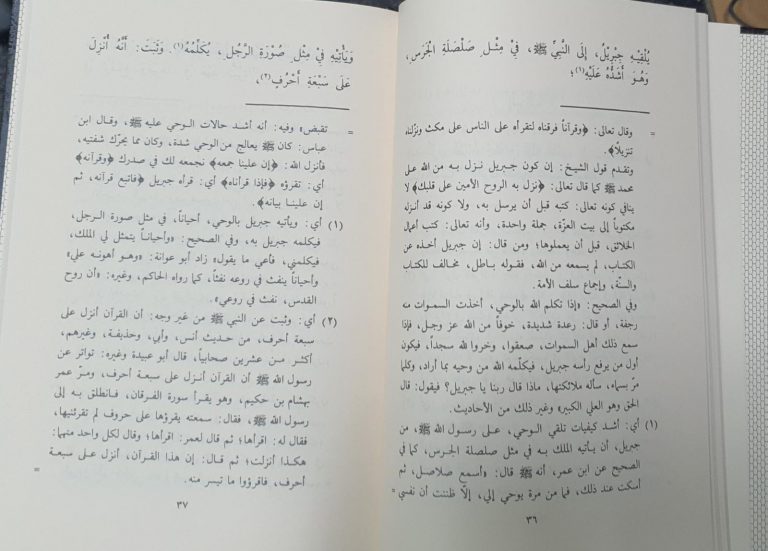 يُلْقِيهِ جِبْرِيْلُ، إِلَى النَّبِيِّ ﷺ، فِيْ مِثْلِ صَلْصَلَةِ الْجَرَسِ،
وَهُوَ أَشَدُّهُ عَلَيْهِ(١)؛
= وقال تعالى: ﴿وقرآناً فرقناه لتقرأه على الناس على مكث ونزلناه
تنزيلاً﴾.
وتقدم قول الشيخ: إن كون جبريل نزل به من الله على
محمد ﷺ كما قال تعالى: ﴿نزل به الروح الأمين على قلبك﴾ لا
ينافي كونه تعالى: كتبه قبل أن يرسل به، ولا كونه قد أنزله
مكتوباً إلى بيت العزّة، جملة واحدة، وأنه تعالى: كتب أعمال
الخلائق، قبل أن يعملوها؛ ومن قال: إن جبريل أخذه عن
الكتاب، لم يسمعه من الله، فقوله باطل، مخالف للكتاب
والسنّة، وإجماع سلف الأمة.
وفي الصحيح: «إذا تكلم الله بالوحي، أخذت السموات منه
رجفة، أو قال: رعدة شديدة، خوفاً من الله عز وجل، فإذا
سمع ذلك أهل السموات، صعقوا، وخروا لله سجداً، فيكون
أول من يرفع رأسه جبريل، فيكلّمه الله من وحيه بما أراد، وكلما
مرّ بسماء، سأله ملائكتها، ماذا قال ربنا يا جبريل؟ فيقول: قال
الحق وهو العلي الكبير» وغير ذلك من الأحاديث.
(١) أي: أشد كيفيات تلقي الوحي، على رسول الله ﷺ، من
جبريل، أن يأتيه الملك به في مثل صلصلة الجرس، كما في
الصحيح عن ابن عمر، أنه ﷺ قال: «أسمع صلاصل، ثم
أسكت عند ذلك، فما من مرة يوحي إلي، إلّا ظننت أن نفسي =
٣٦
وَيَأْتِيْهِ فِيْ مِثْلِ صُوْرَةِ الرَّجُلِ، يُكَلِّمُهُ(١). وَثَبَتَ: أَنَّهُ أُنْزِلَ
عَلَى سَبْعَةِ أَحْرُفٍ(٢)،
= تقبض» وفيه: أنه أشد حالات الوحي عليه ﷺ، وقال ابن
عباس: كان ﷺ يعالج من الوحي شدة، وكان مما يحرّك شفتيه،
فأنزل الله: ﴿إن علينا جمعه﴾ نجمعه لك في صدرك ﴿وقرآنه﴾
أي: تقرؤه ﴿فإذا قرأناه﴾ أي: قرأه جبريل ﴿فاتبع قرآنه، ثم
إن علينا بيانه﴾.
(١) أي: ويأتيه جبريل بالوحي، أحياناً، في مثل صورة الرجل،
فيكلمه جبريل به، وفي الصحيح: «وأحياناً يتمثل لي الملك،
فيكلمني، فأعي ما يقول» زاد أبو عوانة: «وهو أهونه علي»
وأحياناً ينفث في روعه نفثاً، كما رواه الحاكم، وغيره: «أن روح
القدس، نفث في روعي».
(٢) أي: وثبت عن النبي ﷺ من غير وجه: أن القرآن أنزل على
سبعة أحرف، من حديث أنس، وأبي، وحذيفة، وغيرهم،
أكثر من عشرين صحابياً، قال أبو عبيدة وغيره: تواتر عن
رسول الله ﷺ أن القرآن أنزل على سبعة أحرف، ومرّ عمر
بهشام بن حكيم، وهو يقرأ سورة الفرقان، فانطلق به إلى
رسول الله ﷺ، فقال: سمعته يقرؤها على حروف لم تقرئنيها،
فقال له: اقرأها؛ ثم قال لعمر: اقرأها؛ وقال لكل واحد منهما:
هكذا أنزلت؛ ثم قال: إن هذا القرآن، أنزل على سبعة
أحرف، فاقرؤوا ما تيسر منه. =
٣٧